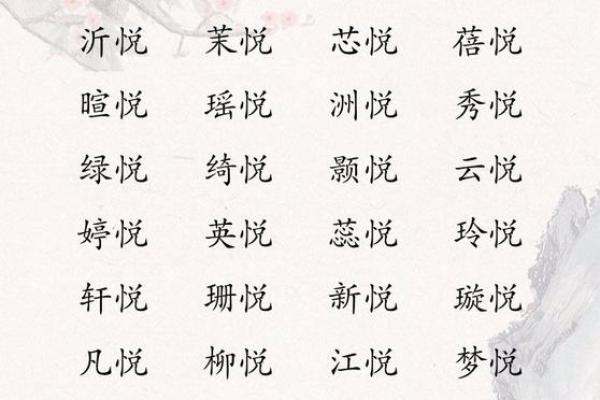 沂悦 茉悦 芯悦 蓓悦
暄悦 瑶悦 洲悦 秀悦
绿悦 绮悦 颢悦 云悦
婷悦 英悦 蕊悦 玲悦
轩悦 珊悦 新悦 璇悦
凡悦 柳悦 江悦 梦悦